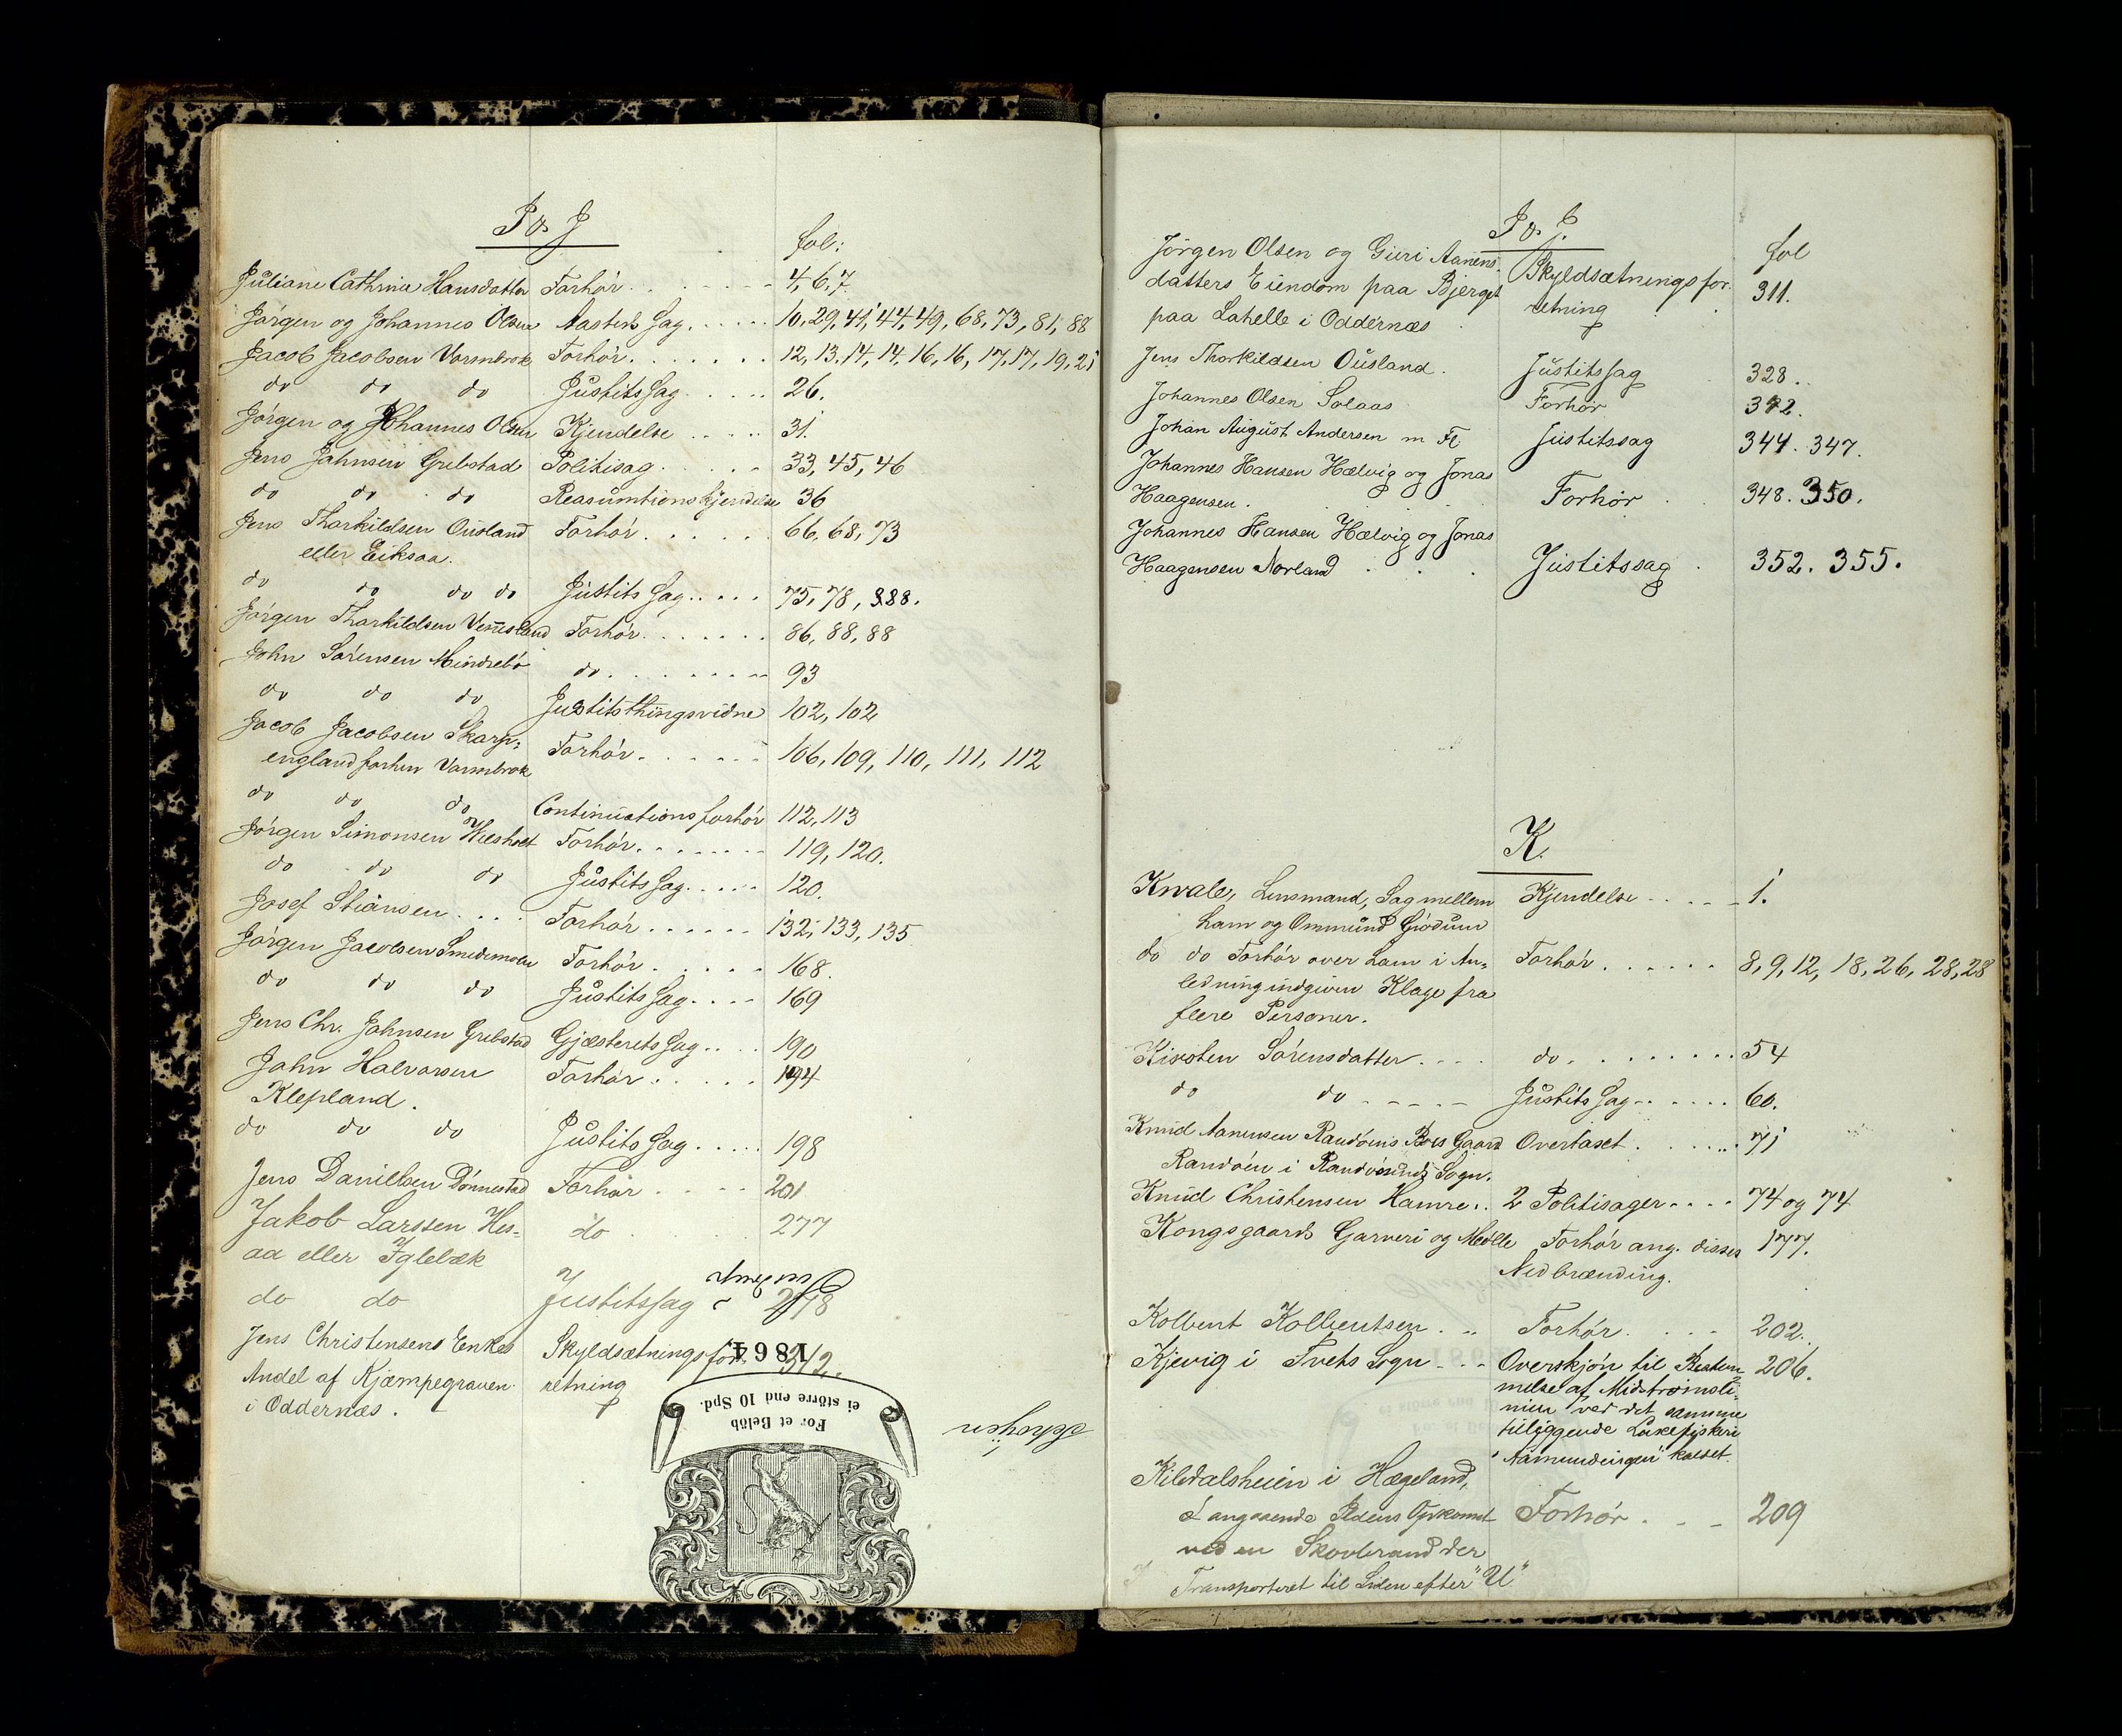 I & J
fol:
Juliane Cathrina Hansdatter Forhör 4, 6, 7.
Jörgen og Johannes Olsen Aasteds Sag 10, 29, 41, 44, 49, 68, 73, 81, 88
Jacob Jacobsen Varmbrok Forhör 12, 13, 14, 14, 16, 16, 17, 17, 19, 21
do do do Justits Sag 26.
Jörgen og Johannes Olsen Kjendelse 31.
Jens Jahnsen Grebstad Politisag 33, 45, 46
do do do Reasumtions Kjendelse 36
Jens Thorkildsen Ousland Forhör 66, 68, 73
eller Eiksaa.
do do do do Justits Sag 75, 78, 328.
Jörgen Thorkildsen Vennesland Forhör 86, 88, 88
John Sörensen Mindrebö do 93
do do do Justitsthingsvidne 102, 102
Jacob Jacobsen Skarp-
england forhen Varmbrok Forhör 106, 109, 110, 111, 112
do do do Continuationsforhör 112, 113
Jörgen Simonsen Forhör 119, 120.
do do do Justits Sag 120.
Josef Stiansen Forhör 132, 133, 135
Jörgen Jacobsen Forhör 168.
do do do Justits Sag 169
Jens Chr. Jahnsen Grebstad Gjæsterets Sag 190
Jahn Halvorsen Forhör 194
Klepland.
do do do Justits Sag 198
Jens Daniellsen Dönnestad Forhör 201
Jakob Larssen Hes-
aa eller Iglebæk do 277
do do Justitssag 278
Jens Christensens Enkes Skyldsætningsfor- 312.
Andel af Kjæmpegraven retning
i Oddernæs.
1864.
For et Belöb
ei större end 10 Spd.
I & J.
fol
Jörgen Olsen og Guri Aanens-
datters Eiendom paa Bjerget Skyldsætningsfor- 311.
paa Lahelle i Oddernæs retning
Jens Thorkildsen Ousland. Justitssag 328.
Johannes Olsen Solaas Forhör 342.
Johan August Andersen m Fl Justitssag 344. 347.
Johannes Hansen Hælvig og Jonas
Haagensen. Forhör 348. 350.
Johannes Hansen Hælvig og Jonas
Haagensen Norland Justitssag 352. 355.
K.
Kvale, Lensmand, Sag mellem Kjendelse 1.
ham og Ommund Grödum
do do Forhör over ham i An- Forhör 8, 9, 12, 18, 26, 28, 28
ledning indgiven Klage fra
flere Personer.
Kirsten Sörensdatter do 54
do do Justits Sag 60.
Knud Aanensen Randöens Gaard Overtaxt 71
Randöen i Randösunds Sogn.
Knud Christensen Hamre 2 Politisager 74 og 74
Kongsgaards Garveri og Mölle Forhör ang. disses 177.
Nedbrænding.
Kolbent Kolbentsen Forhör 202.
Kjevig i Tvets Sogn Overskjön til Bestem- 206.
melse af Midströmsli-
nien ved det samme
tilliggende Laxefiskeri
kaldet.
Kildalsheien i Hægeland,
angaaende Ildens Opkomst Forhör 209
ved en Skovbrand der
Transporteret til Siden efter "U"